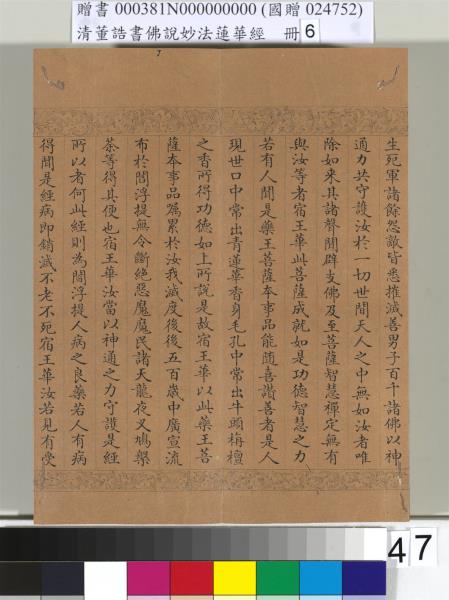 贈書 000381N000000000 (國贈 024752)
清董誥書佛說妙法蓮華經 冊 6
生死軍諸餘怨敵皆悉摧滅善男子百千諸佛以神
通力共守護汝於一切世間天人之中無如汝者唯
除如來其諸聲聞辟支佛乃至菩薩智慧禪定無有
與汝等者宿王華此菩薩成就如是功德智慧之力
若有人聞是藥王菩薩本事品能隨喜讚善者是人
現世口中常出青蓮華香身毛孔中常出牛頭栴檀
之香所得功德如上所說是故宿王華以此藥王菩
薩本事品囑累於汝我滅度後後五百歲中廣宣流
布於閻浮提無令斷絕惡魔魔民諸天龍夜叉鳩槃
荼等得其便也宿王華汝當以神通之力守護是經
所以者何此經則為閻浮提人病之良藥若人有病
得聞是經病即銷滅不老不死宿王華汝若見有受
47